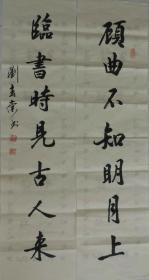 顾曲不知明月上
臨書時見古人来